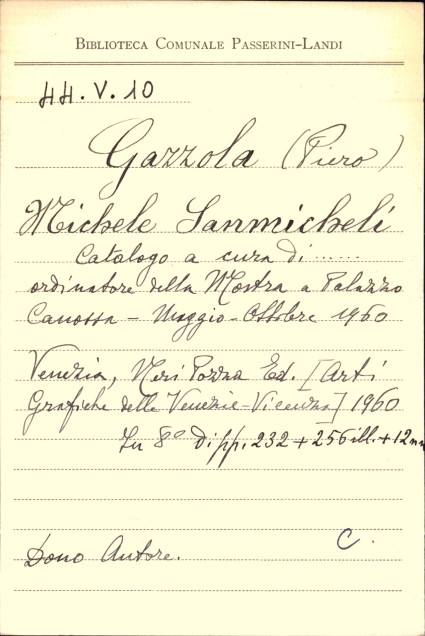 BIBLIOTECA COMUNALE PASSERINI-LANDI
44.V.10
Gazzola (Piero)
Michele Sanmicheli
Catalogo a cura di ......
ordinatore della Mostra a Palazzo
Canossa - Maggio-Ottobre 1960
Venezia, Neri Pozza Ed. [Arti
Grafiche delle Venezie-Vicenza] 1960
In 8° di pp. 232 + 256 ill. + 12
Dono Autore.
C.